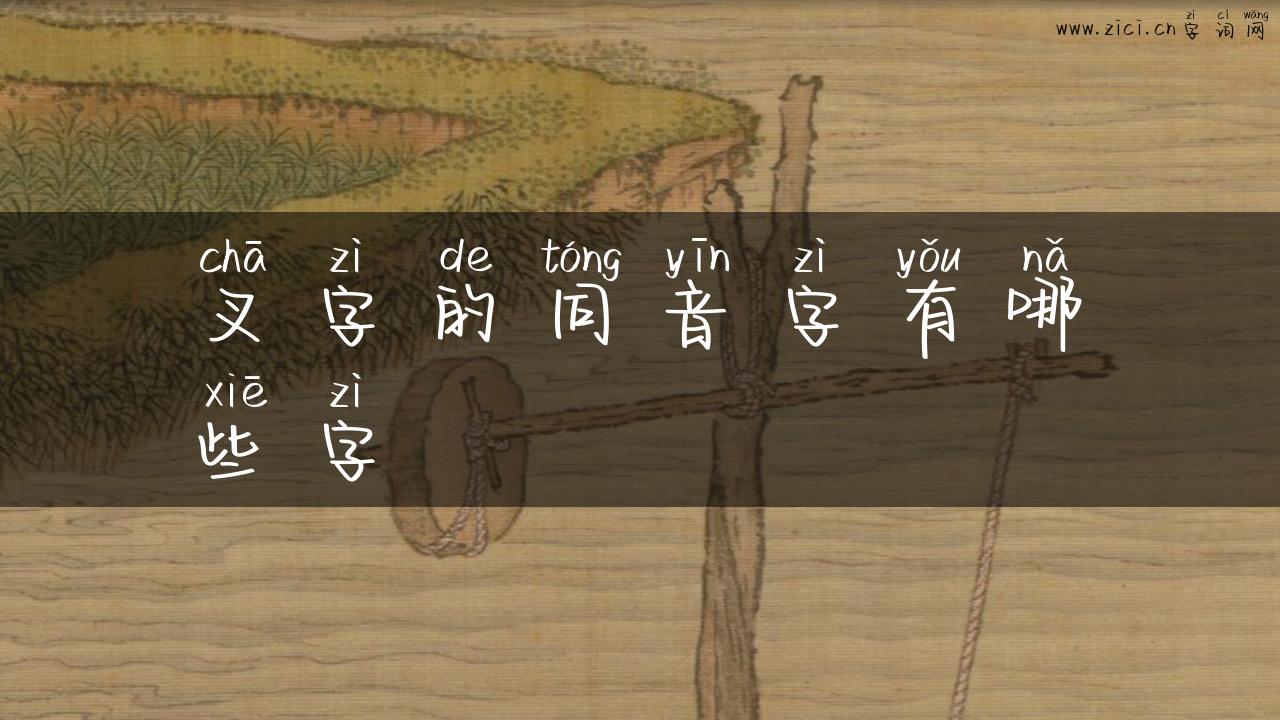 zì cí wǎng
www.zici.cn 字词网
chā zì de tóng yīn zì yǒu nǎ
叉字的同音字有哪
xiē zì
些字